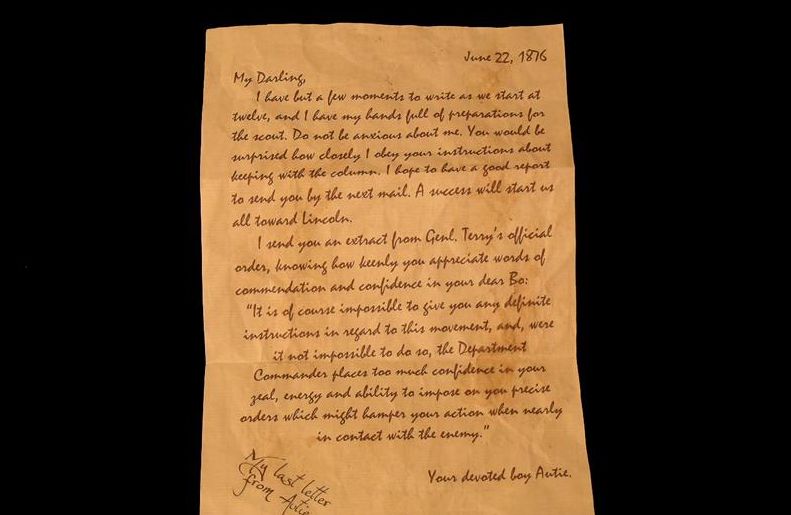 June 22, 1876
My Darling,
I have but a few moments to write as we start at
twelve, and I have my hands full of preparations for
the scout. Do not be anxious about me. You would be
surprised how closely I obey your instructions about
keeping with the column. I hope to have a good report
to send you by the next mail. A success will start us
all toward Lincoln.
I send you an extract from Genl. Terry's official
order, knowing how keenly you appreciate words of
commendation and confidence in your dear Bo:
"It is of course impossible to give you any definite
instructions in regard to this movement, and, were
it not impossible to do so, the Department
Commander places too much confidence in your
zeal, energy and ability to impose on you precise
orders which might hamper your action when nearly
in contact with the enemy."
Your devoted boy Autie.
My last letter
from Autie